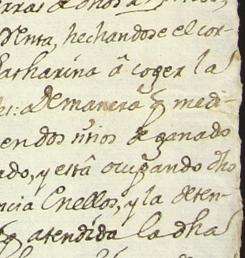 Venta, hechandose el cor-
Catharina â coger la
: a De manera q̃ medi-
en dos sitios de ganado
ado, y estâ ocupando dho
ncia Enellos, y la deten-
q̃ atendida la dha